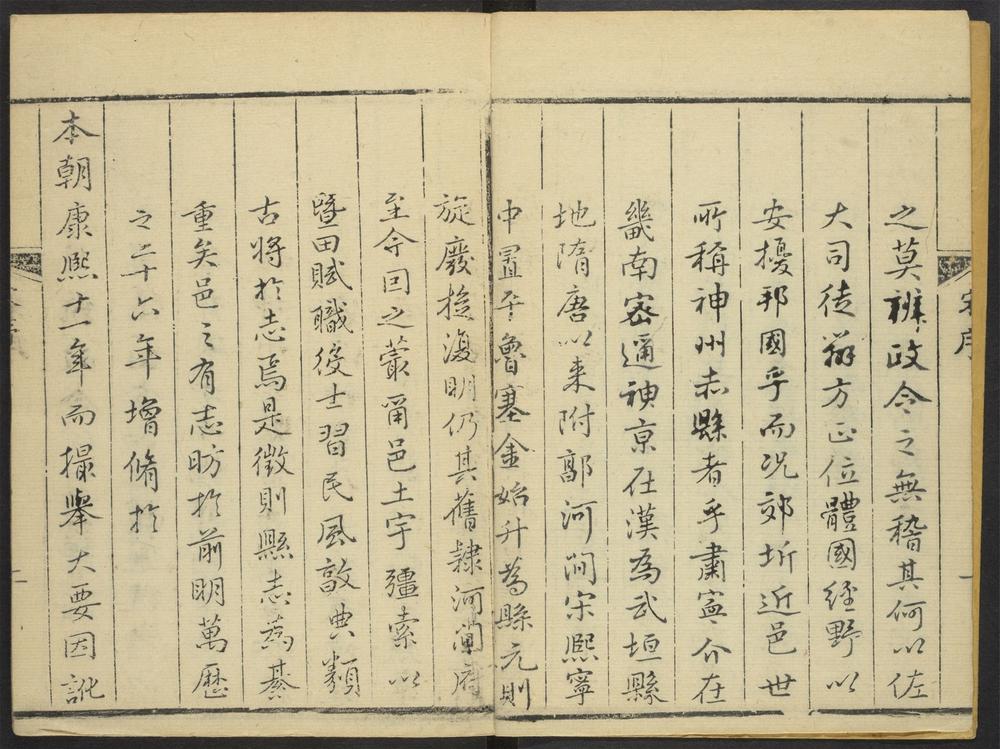 序
一
之莫辨政令之無稽其何以佐
大司徒辨方正位體國經野以
安擾邦國乎而況郊圻近邑世
所稱神州赤縣者乎肅寧介在
畿南密邇神京在漢為武垣縣
地隋唐以來附郭河間宋熙寧
中置平魯塞金始升為縣元則
旋廢旋復明仍其舊隷河間府
至今因之蕞爾邑土宇疆索以
曁田賦職役士習民風敦典類
古將於志焉是徵則縣志為綦
重矣邑之有志昉於前明萬歷
之二十六年增脩於
本朝康熙十一年而撮舉大要因訛